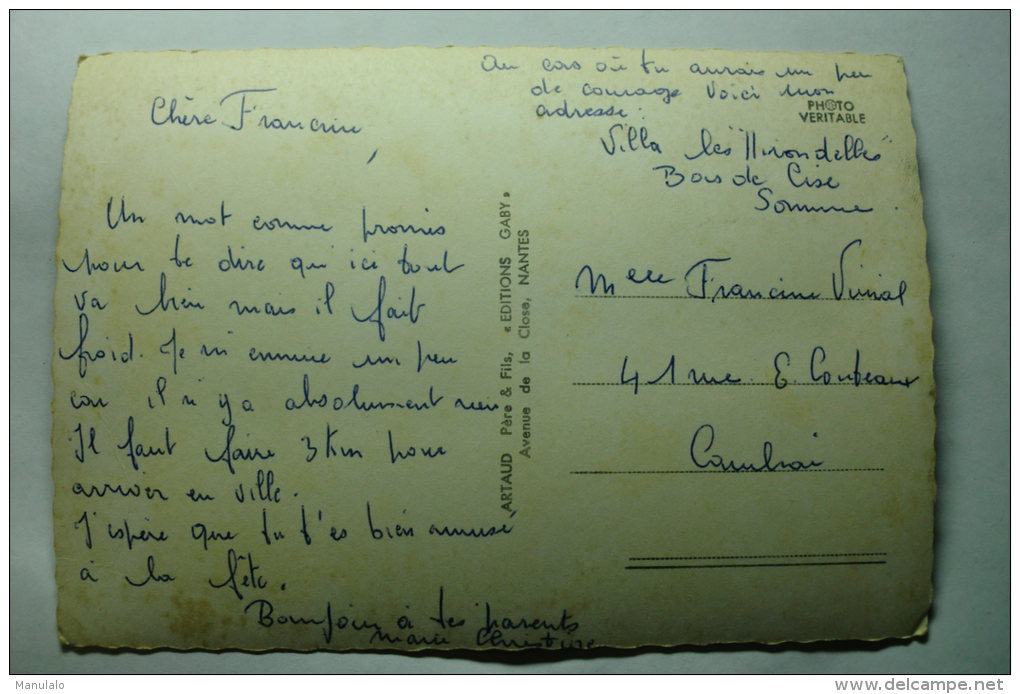 Chère Francine
Un mot comme promis
pour te dire qu'ici tout
va bien mais il fait
froid. Je m'ennuie un peu
car il n'y a absolument rien
Il faut faire 3 km pour
arriver en ville.
J'espère que tu t'es bien amusé
à la fête.
Bonjour à tes parents
Marie Christine
Au cas où tu aurais un peu
de courage voici mon
adresse :
Villa "les Hirondelles"
Bois de Cise
Somme.
PHOTO
VERITABLE
ARTAUD Père & Fils, « EDITIONS GABY »
Avenue de la Close, NANTES
Melle Francine
41 rue E. Couteaux
Cambrai
Manulalo
delcampe.net